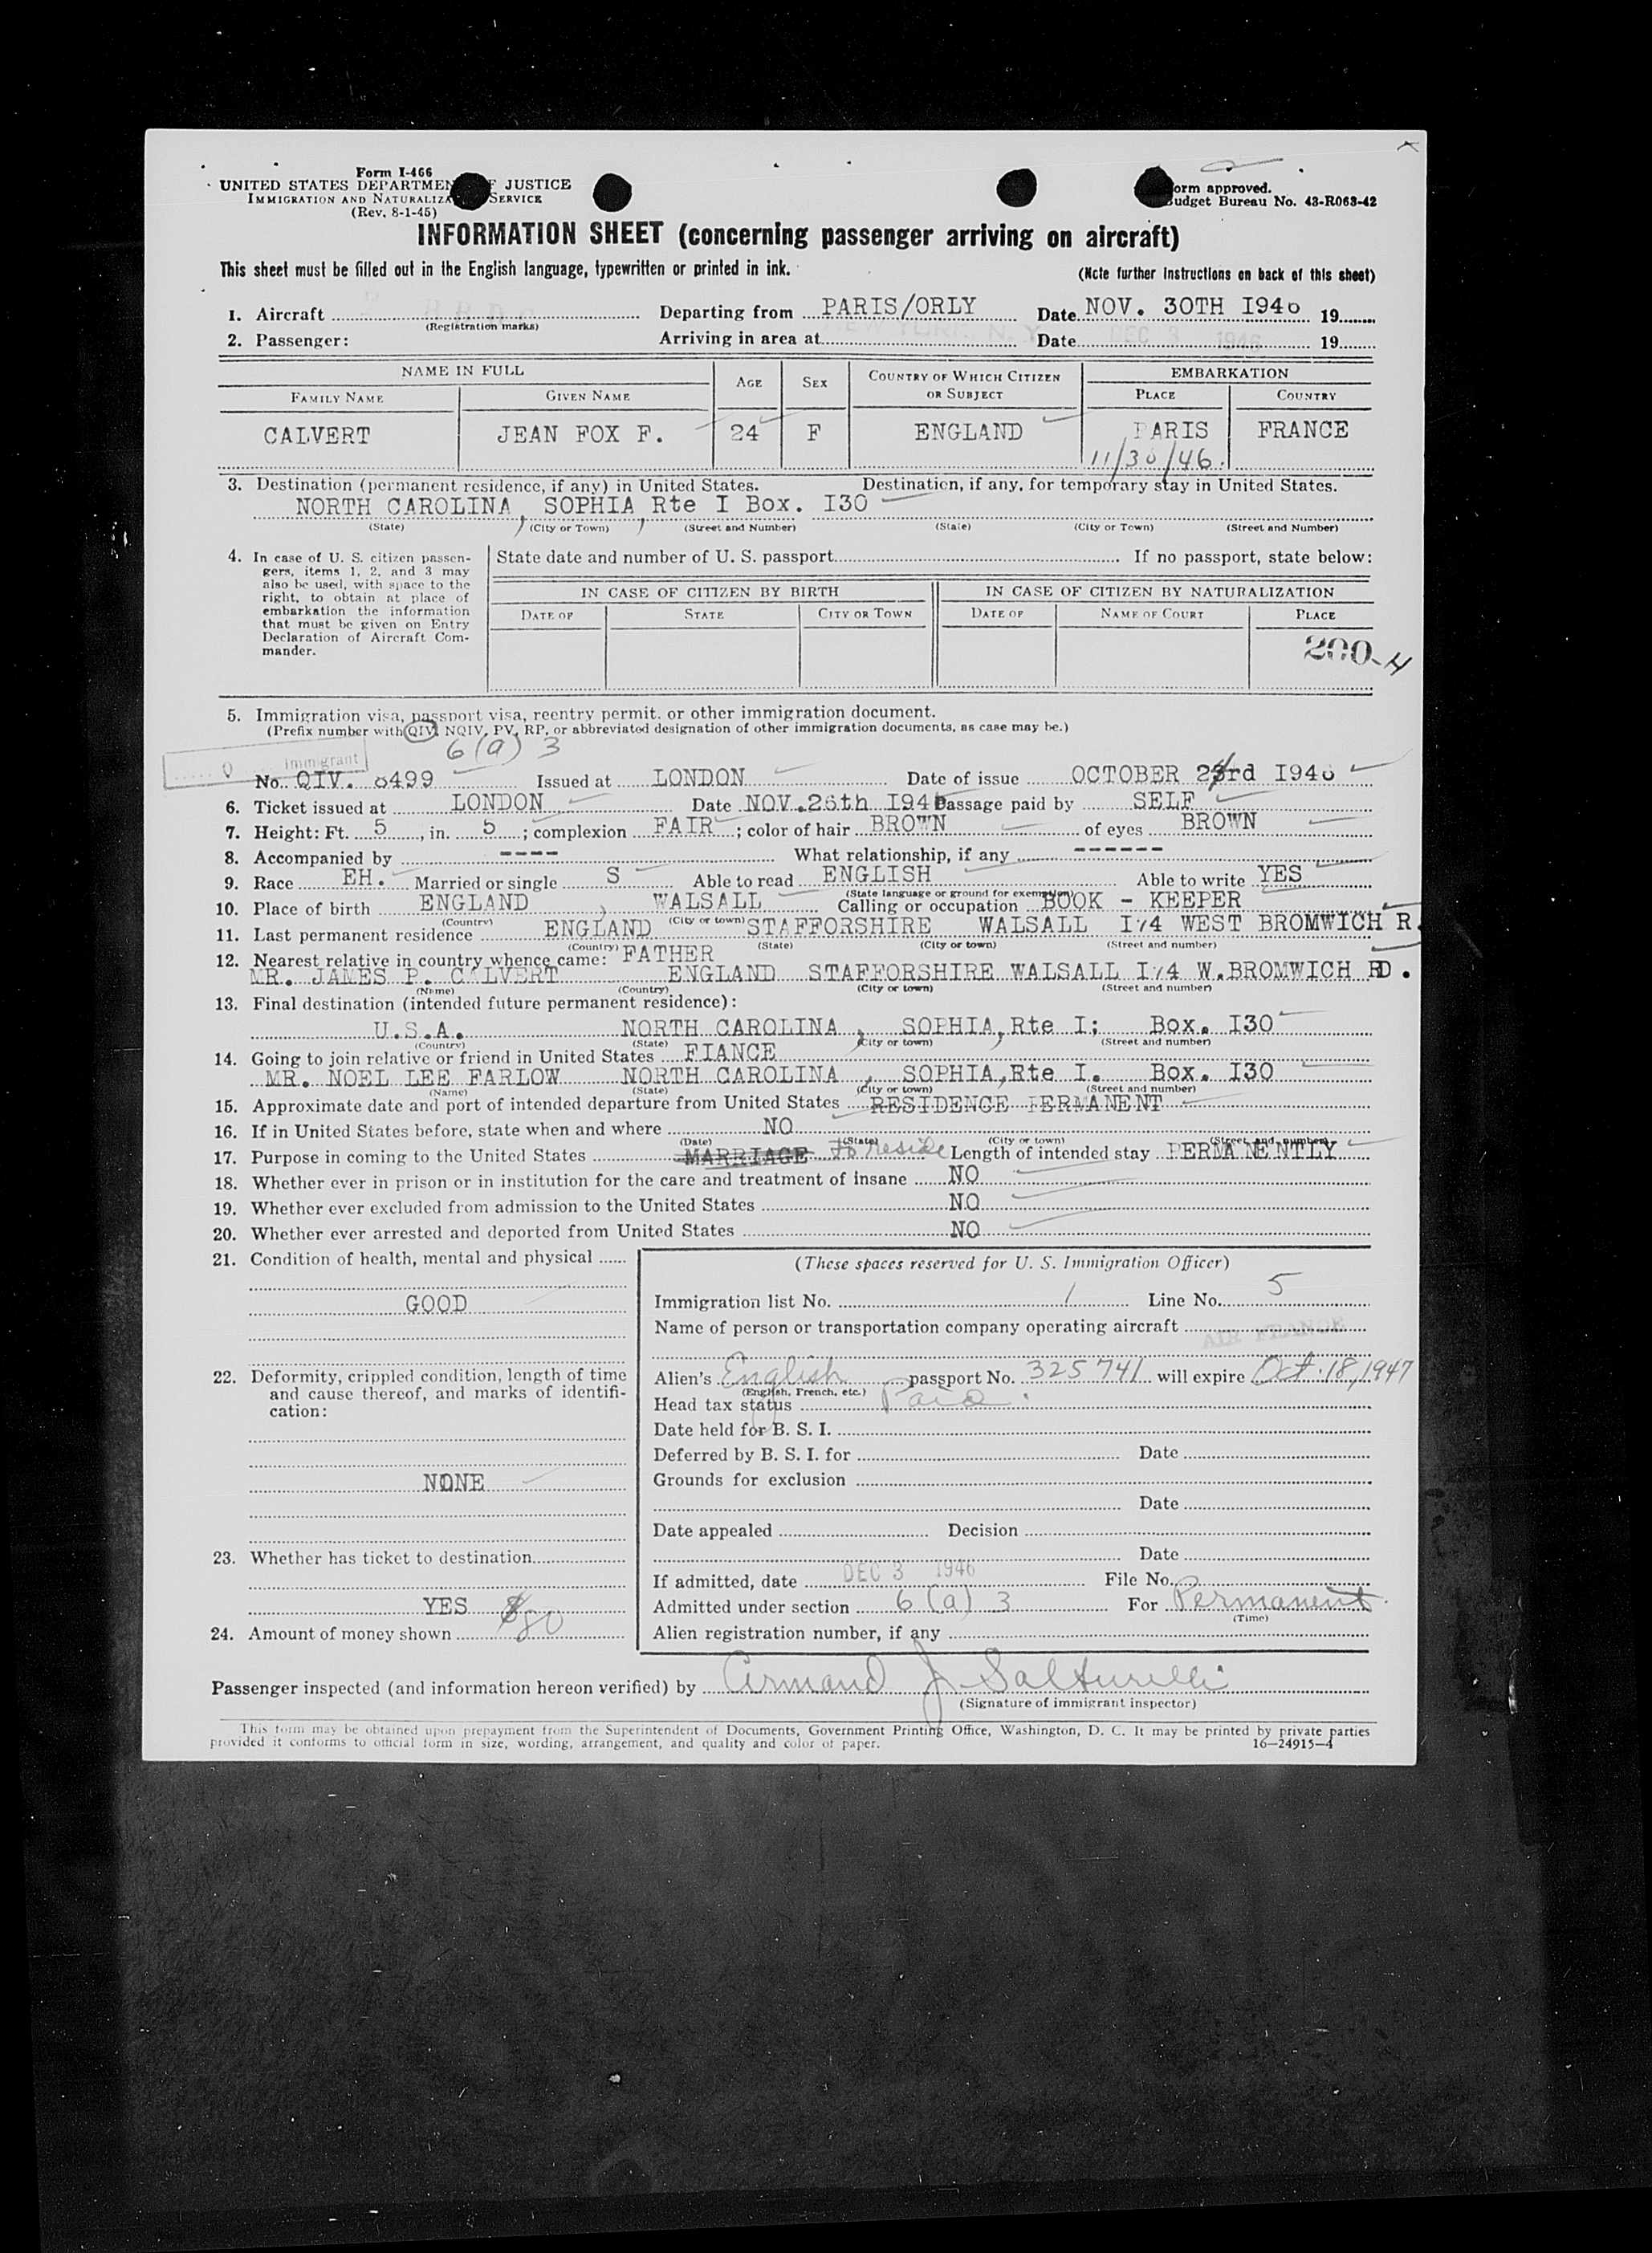 Form I-466
UNITED STATES DEPARTMEN F JUSTICE
IMMIGRATION AND NATURALIZA SERVICE
(Rev. 8-1-45)
orm approved.
udget Bureau No. 43-R063-42
INFORMATION SHEET (concerning passenger arriving on aircraft)
This sheet must be filled out in the English language, typewritten or printed in ink.
(Note further instructions on back of this sheet)
1. Aircraft (Registration marks) Departing from PARIS/ORLY Date NOV. 30TH I946 19
2. Passenger: Arriving in area at NEW YORK, N. Y. Date DEC 3 1946 19
NAME IN FULL AGE SEX COUNTRY OF WHICH CITIZEN OR SUBJECT EMBARKATION
FAMILY NAME GIVEN NAME PLACE COUNTRY
CALVERT JEAN FOX F. 24 F ENGLAND PARIS FRANCE
11/30/46.
3. Destination (permanent residence, if any) in United States. Destination, if any, for temporary stay in United States.
NORTH CAROLINA, SOPHIA, Rte I Box. I30
(State) (City or Town) (Street and Number) (State) (City or Town) (Street and Number)
4. In case of U. S. citizen passengers, items 1, 2, and 3 may also be used, with space to the right, to obtain at place of embarkation the information that must be given on Entry Declaration of Aircraft Commander.
State date and number of U. S. passport If no passport, state below:
IN CASE OF CITIZEN BY BIRTH IN CASE OF CITIZEN BY NATURALIZATION
DATE OF STATE CITY OR TOWN DATE OF NAME OF COURT PLACE
200-4
5. Immigration visa, passport visa, reentry permit, or other immigration document.
(Prefix number with QIV, NQIV, PV, RP, or abbreviated designation of other immigration documents, as case may be.)
6(a) 3
Q Immigrant
No. QIV. 8499 Issued at LONDON Date of issue OCTOBER 23rd I946
6. Ticket issued at LONDON Date NOV.26th I946 Passage paid by SELF
7. Height: Ft. 5, in. 5; complexion FAIR; color of hair BROWN of eyes BROWN
8. Accompanied by ---- What relationship, if any ------
9. Race EH. Married or single S Able to read ENGLISH Able to write YES
(State language or ground for exemption)
10. Place of birth ENGLAND, WALSALL Calling or occupation BOOK - KEEPER
(Country) (City or town)
11. Last permanent residence ENGLAND STAFFORSHIRE WALSALL I74 WEST BROMWICH R.
(Country) (State) (City or town) (Street and number)
12. Nearest relative in country whence came: FATHER
MR. JAMES P. CALVERT ENGLAND STAFFORSHIRE WALSALL I74 W.BROMWICH RD.
(Name) (Country) (City or town) (Street and number)
13. Final destination (intended future permanent residence):
U.S.A. NORTH CAROLINA, SOPHIA, Rte I; Box. I30
(Country) (State) (City or town) (Street and number)
14. Going to join relative or friend in United States FIANCE
MR. NOEL LEE FARLOW NORTH CAROLINA, SOPHIA, Rte I. Box. I30
(Name) (State) (City or town) (Street and number)
15. Approximate date and port of intended departure from United States RESIDENCE PERMANENT
16. If in United States before, state when and where NO
(Date) (State) (City or town) (Street and number)
17. Purpose in coming to the United States MARRIAGE to reside Length of intended stay PERMANENTLY
18. Whether ever in prison or in institution for the care and treatment of insane NO
19. Whether ever excluded from admission to the United States NO
20. Whether ever arrested and deported from United States NO
21. Condition of health, mental and physical
GOOD
22. Deformity, crippled condition, length of time and cause thereof, and marks of identification:
NONE
23. Whether has ticket to destination
YES
24. Amount of money shown $80
(These spaces reserved for U. S. Immigration Officer)
Immigration list No. 1 Line No. 5
Name of person or transportation company operating aircraft AIR FRANCE
Alien's English passport No. 325741 will expire Oct. 18, 1947
(English, French, etc.)
Head tax status Paid.
Date held for B. S. I.
Deferred by B. S. I. for Date
Grounds for exclusion
Date
Date appealed Decision
Date
If admitted, date DEC 3 1946 File No.
Admitted under section 6(a) 3 For Permanent
(Time)
Alien registration number, if any
Passenger inspected (and information hereon verified) by Armand J Salturelli
(Signature of immigrant inspector)
This form may be obtained upon prepayment from the Superintendent of Documents, Government Printing Office, Washington, D. C. It may be printed by private parties
provided it conforms to official form in size, wording, arrangement, and quality and color of paper.
16—24915-4